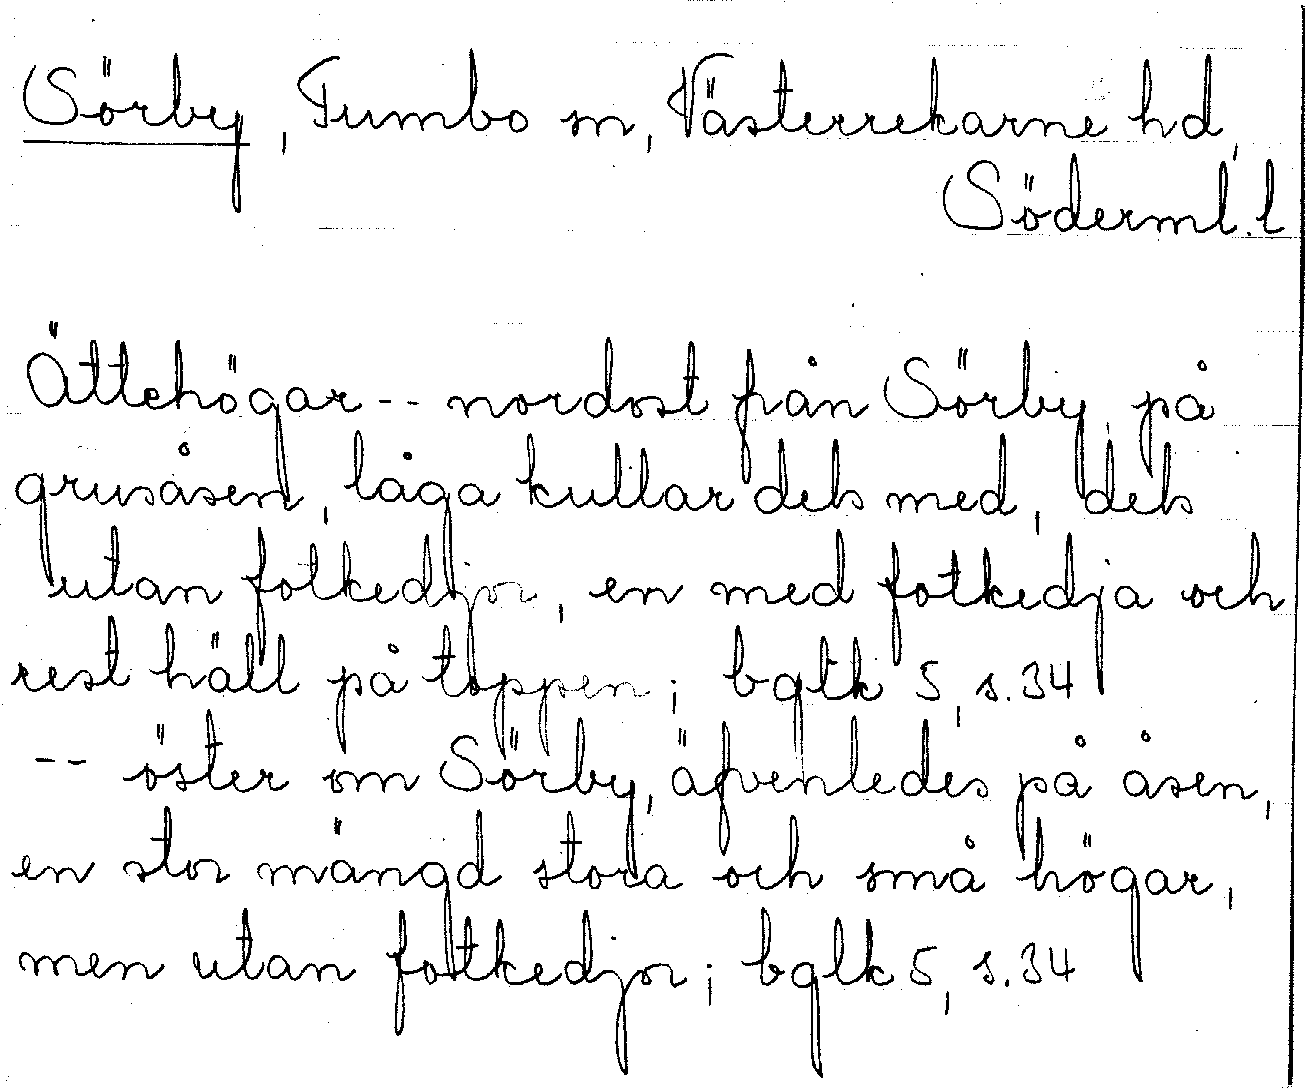 Sörby, Tumbo sn, Västerrekarne hd,
Söderml. l
Ättehögar -- nordost från Sörby på
grusåsen, låga kullar dels med, dels
utan fotkedjor, en med fotkedja och
rest häll på toppen; bglk 5, s. 34
-- öster om Sörby, äfvenledes på åsen,
en stor mängd stora och små högar,
men utan fotkedjor; bglk 5, s. 34